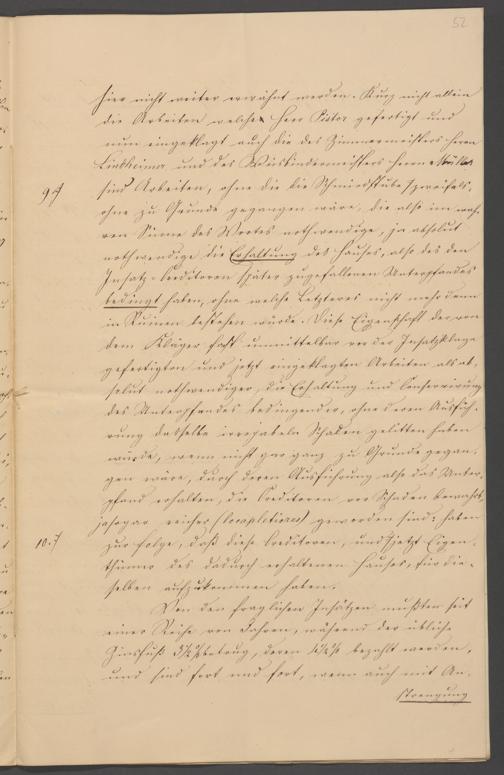 52
hier nicht weiter erwähnt werden. Kurz nicht allein
die Arbeiten welche Herr Pistor gefertigt und
nun eingeklagt auch die des Zimmermeisters Herrn
Lindheimer und des Weisbindermeisters Herrn
9.)
sind Arbeiten, ohne die die Schmiedstube zweifels-
ohne zu Grunde gegangen wäre, die also im wah-
ren Sinne des Wortes nothwendige, ja absolut
nothwendige die Erhaltung des Hauses, also des den
Insatz-Creditoren später zugefallenen Unterpfandes
bedingt haben, ohne welche Letzteres nicht mehr denn
in Ruinen bestehen würde. Diese Eigenschaft der von
dem Kläger fast unmittelbar vor der Insatzklage
gefertigten und jetzt eingeklagten Arbeiten als ab-
solut nothwendiger, die Erhaltung und Conservirung
des Unterpfandes bedingender, ohne deren Ausfüh-
rung dasselbe irreparabeln Schaden gelitten haben
würde, wenn nicht gar ganz zu Grunde gegan-
gen wäre, durch deren Ausführung also das Unter-
pfand erhalten, die Creditoren vor Schaden bewahrt,
ja sogar reicher (locupletiores) geworden sind; haben
10.)
zur Folge, daß diese Creditoren, und jetzt Eigen-
thümer des dadurch erhaltenen Hauses, für die-
selben aufzukommen haben.
Von den fraglichen Insätzen mußten seit
einer Reihe von Jahren, während der übliche
Zinsfuß 3½% betrug, deren 4½% bezahlt werden,
und sind fort und fort, wenn auch mit An-
strengung